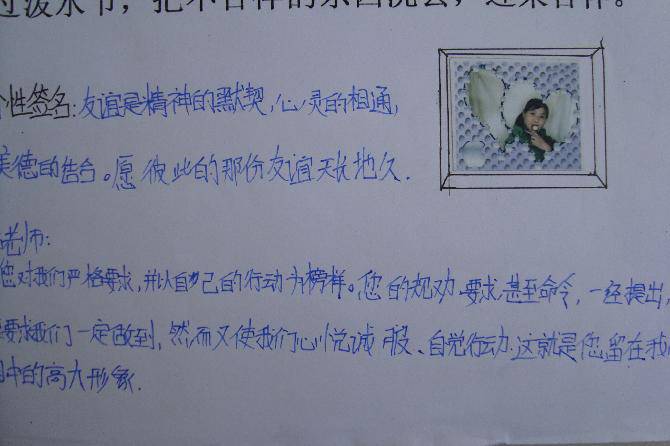 过泼水节，把不吉祥的东西洗去，迎来吉祥。
个性签名:友谊是精神的默契,心灵的相通,
美德的结合。愿彼此的那份友谊天长地久.
老师:
您对我们严格要求,并以自己的行动为榜样。您的规劝、要求,甚至命令,一经提出,
要求我们一定做到,然而又使我们心悦诚服、自觉行动.这就是您留在我
中的高大形象.